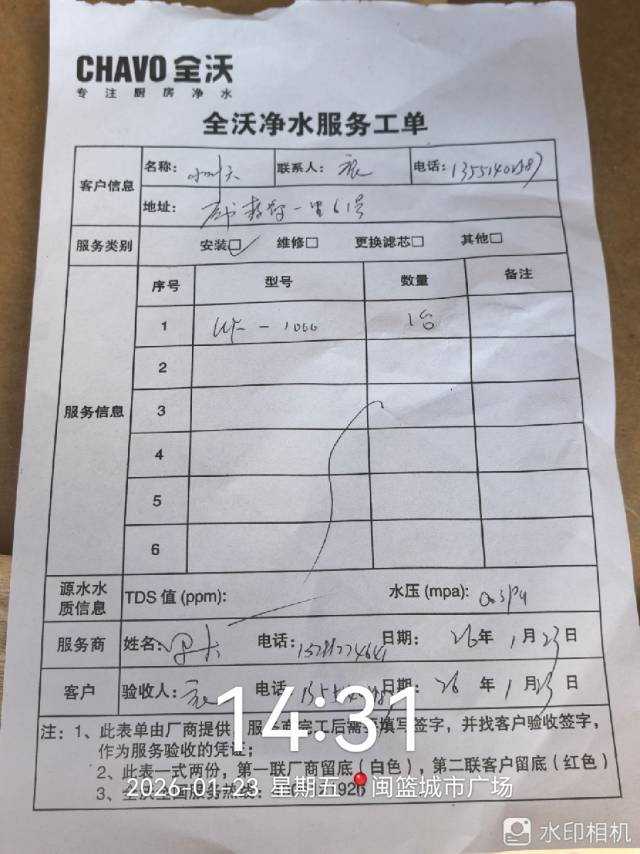 CHAVO 全沃
专注厨房净水
全沃净水服务工单
客户信息 名称: 联系人: 电话:
地址:
服务类别 安装□ 维修□ 更换滤芯□ 其他□
服务信息 序号 型号 数量 备注
1 -1000 1台
2
3
4
5
6
源水水质信息 TDS 值 (ppm): 水压 (mpa):
服务商 姓名: 电话: 日期: 26年 1月23日
客户 验收人: 电话 日期: 26年 1月23日
14:31
注: 1、此表单由厂商提供,服务商完工后需 填写签字,并找客户验收签字,
作为服务验收的凭证;
2、此表一式两份,第一联厂商留底(白色),第二联客户留底(红色)
3、全沃全国服务热线:
2026.01.23 星期五 闽篮城市广场
水印相机